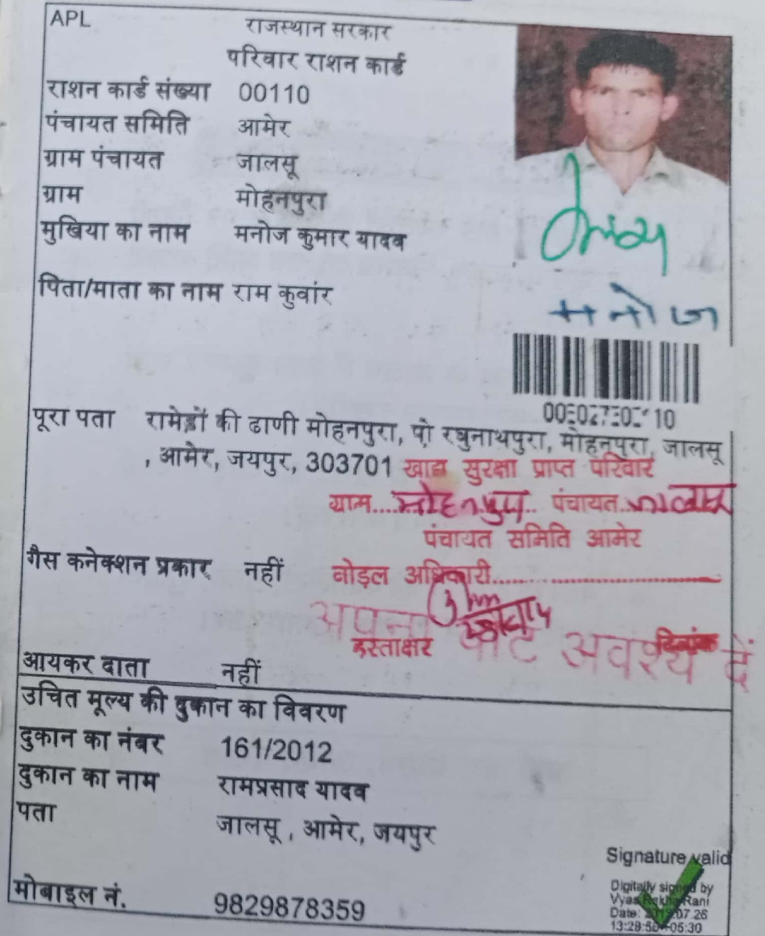 APL
राजस्थान सरकार
परिवार राशन कार्ड
राशन कार्ड संख्या 00110
पंचायत समिति आमेर
ग्राम पंचायत जालसू
ग्राम मोहनपुरा
मुखिया का नाम मनोज कुमार यादव
पिता/माता का नाम राम कुवांर
मनोज
पूरा पता रामेडों की ढाणी मोहनपुरा, पो रघुनाथपुरा, मोहनपुरा, जालसू
, आमेर, जयपुर, 303701 खाद्य सुरक्षा प्राप्त परिवार
ग्राम... मोहनपुरा.. पंचायत.. जालसू
पंचायत समिति आमेर
गैस कनेक्शन प्रकार नहीं नोडल अधिकारी
अपना वोट अवश्य दें
हस्ताक्षर दिनांक
आयकर दाता नहीं
उचित मूल्य की दुकान का विवरण
दुकान का नंबर 161/2012
दुकान का नाम रामप्रसाद यादव
पता जालसू , आमेर, जयपुर
Signature valid
Digitally signed by
Vyas Rekha Rani
Date: 07.26
मोबाइल नं. 9829878359